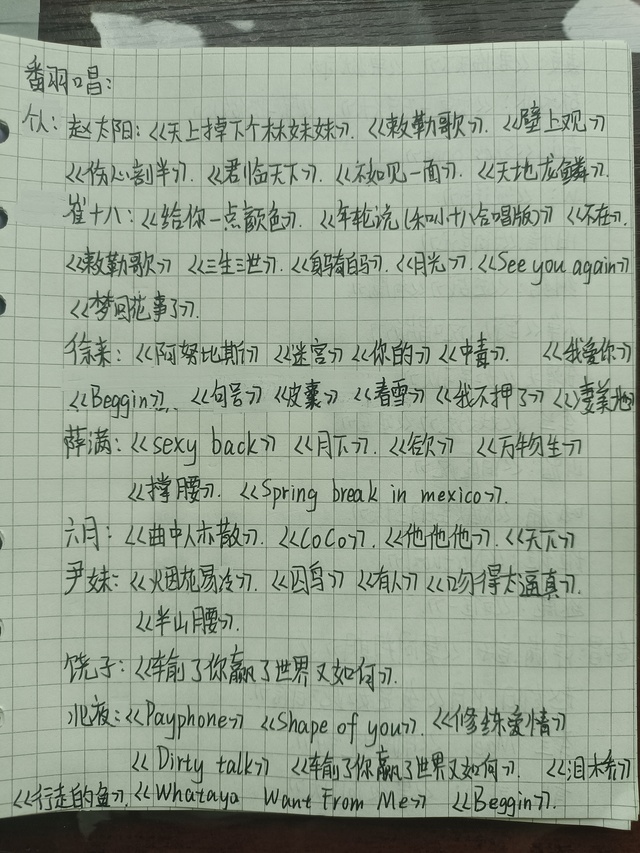 翻唱:
个人: 赵太阳:《天上掉下个林妹妹》.《敕勒歌》.《壁上观》
《伤心割半》.《君临天下》.《不如见一面》.《天地龙鳞》.
崔十八:《给你一点颜色》.《年轮说(和叫十八合唱版)》《不在》.
《敕勒歌》《三生三世》.《身骑白马》.《月光》.《See you again》
《梦回花事了》.
徐来:《阿努比斯》《迷宫》《你的》《中毒》. 《我爱你》
《Beggin》. 《句号》《皮囊》《春雪》《我不押了》《凄美地》
薛满:《sexy back》 《月下》.《欲》 《万物生》
《撑腰》. 《Spring break in mexico》.
六月:《曲中人亦散》.《CoCo》.《他他他》.《天下》
尹妹:《烟花易冷》《囚鸟》《有人》《吻得太逼真》.
《半山腰》.
饶子:《输了你赢了世界又如何》.
北夜:《Payphone》《Shape of you》.《修炼爱情》
《Dirty talk》 《输了你赢了世界又如何》. 《泪桥》
《行走的鱼》.《Whataya Want From Me》 《Beggin》.